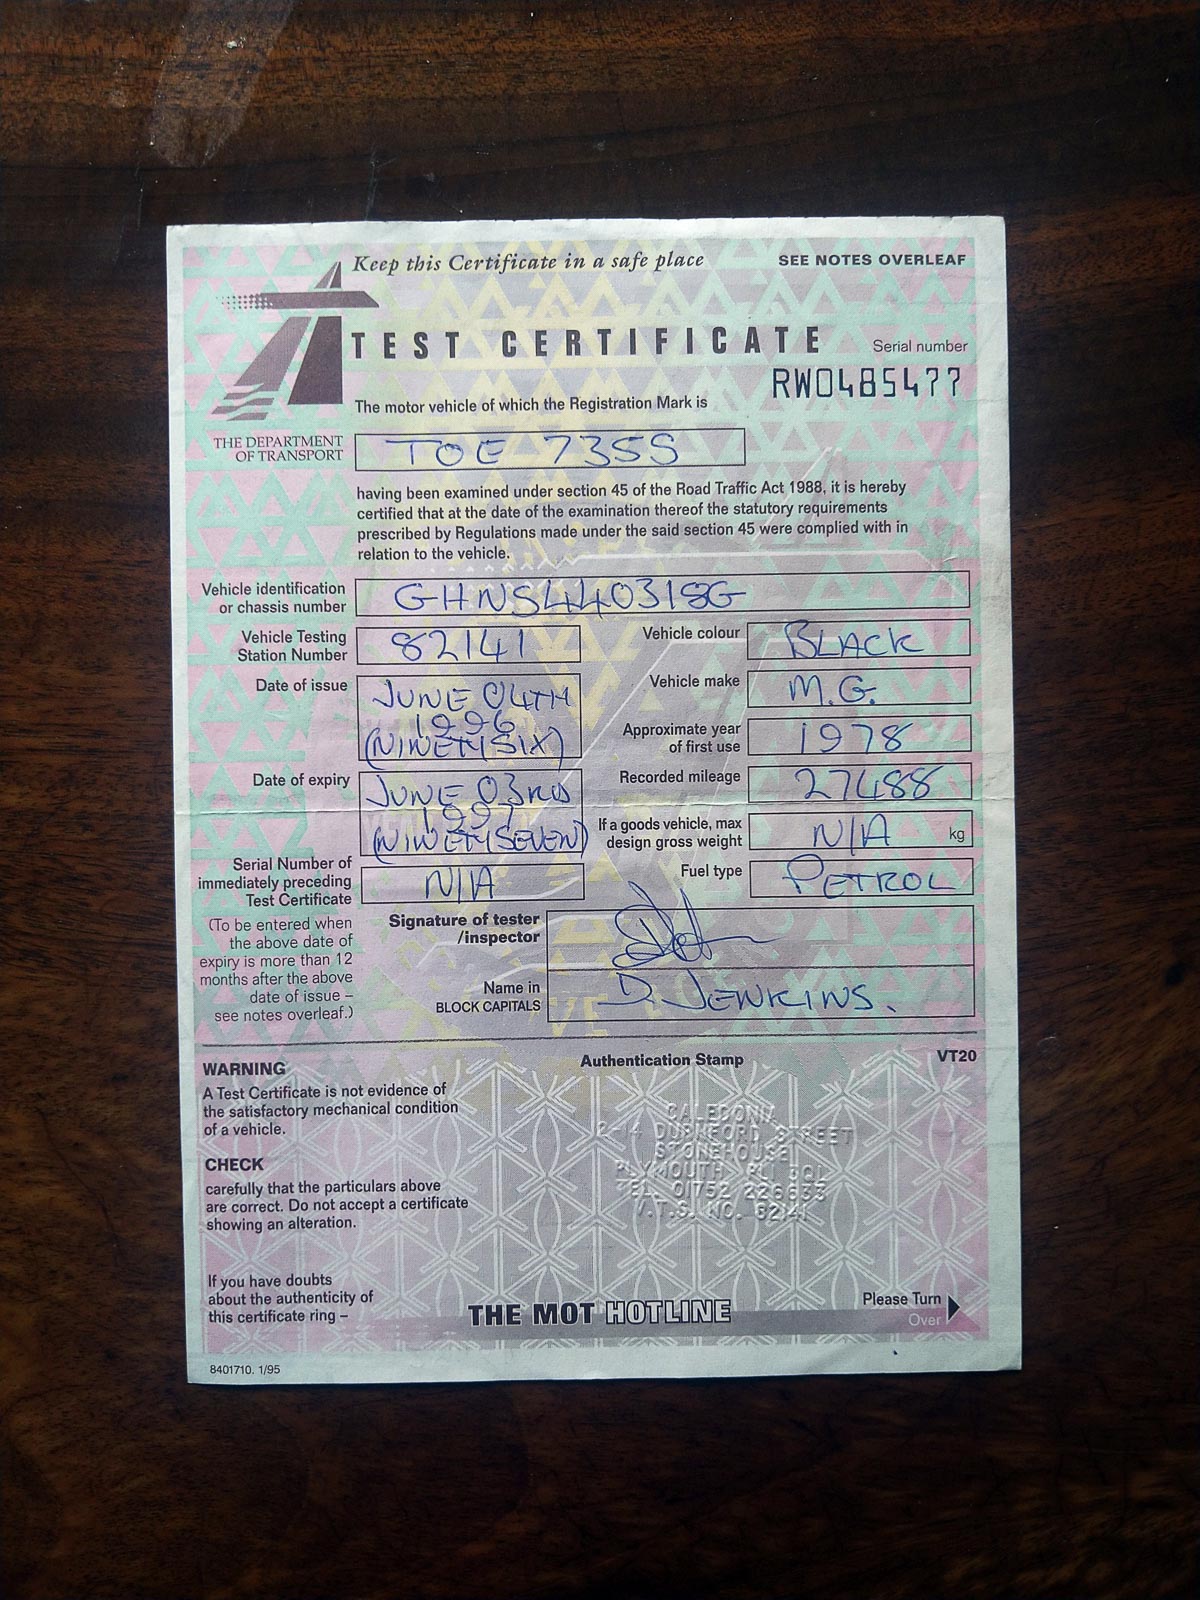 Keep this Certificate in a safe place
SEE NOTES OVERLEAF
TEST CERTIFICATE
Serial number
RW0485477
THE DEPARTMENT
OF TRANSPORT
The motor vehicle of which the Registration Mark is
TOE 735S
having been examined under section 45 of the Road Traffic Act 1988, it is hereby
certified that at the date of the examination thereof the statutory requirements
prescribed by Regulations made under the said section 45 were complied with in
relation to the vehicle.
Vehicle identification
or chassis number
GHN5440318G
Vehicle Testing
Station Number
82141
Vehicle colour
BLACK
Date of issue
JUNE 04TH
1996
(NINETY SIX)
Vehicle make
M.G.
Approximate year
of first use
1978
Date of expiry
JUNE 03RD
1997
(NINETY SEVEN)
Recorded mileage
27488
If a goods vehicle, max
design gross weight
N/A
kg
Serial Number of
immediately preceding
Test Certificate
N/A
Fuel type
PETROL
(To be entered when
the above date of
expiry is more than 12
months after the above
date of issue –
see notes overleaf.)
Signature of tester
/inspector
Name in
BLOCK CAPITALS
D. JENKINS.
WARNING
A Test Certificate is not evidence of
the satisfactory mechanical condition
of a vehicle.
CHECK
carefully that the particulars above
are correct. Do not accept a certificate
showing an alteration.
If you have doubts
about the authenticity of
this certificate ring –
Authentication Stamp
VT20
CALEDONIA
2-14 DURNFORD STREET
STONEHOUSE
PLYMOUTH PL1 3QL
TEL 01752 226633
V.T.S. NO. 82141
THE MOT HOTLINE
Please Turn
Over
8401710. 1/95